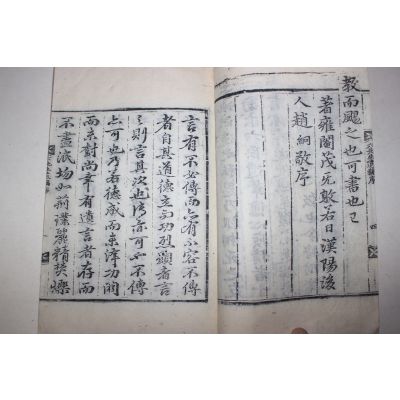 敎而颺之也可書也已
著雍閹茂元敦若日漢陽後
人趙絅敬序
言有不必傳而亦有不容不傳
者自其道德立而功烈顯者言
之則言其次也傳亦可也不傳
亦可也乃若德咸而未澤功閎
而未對尚幸有遺言者存而
不盡泯均如荊璞麗精焚爍